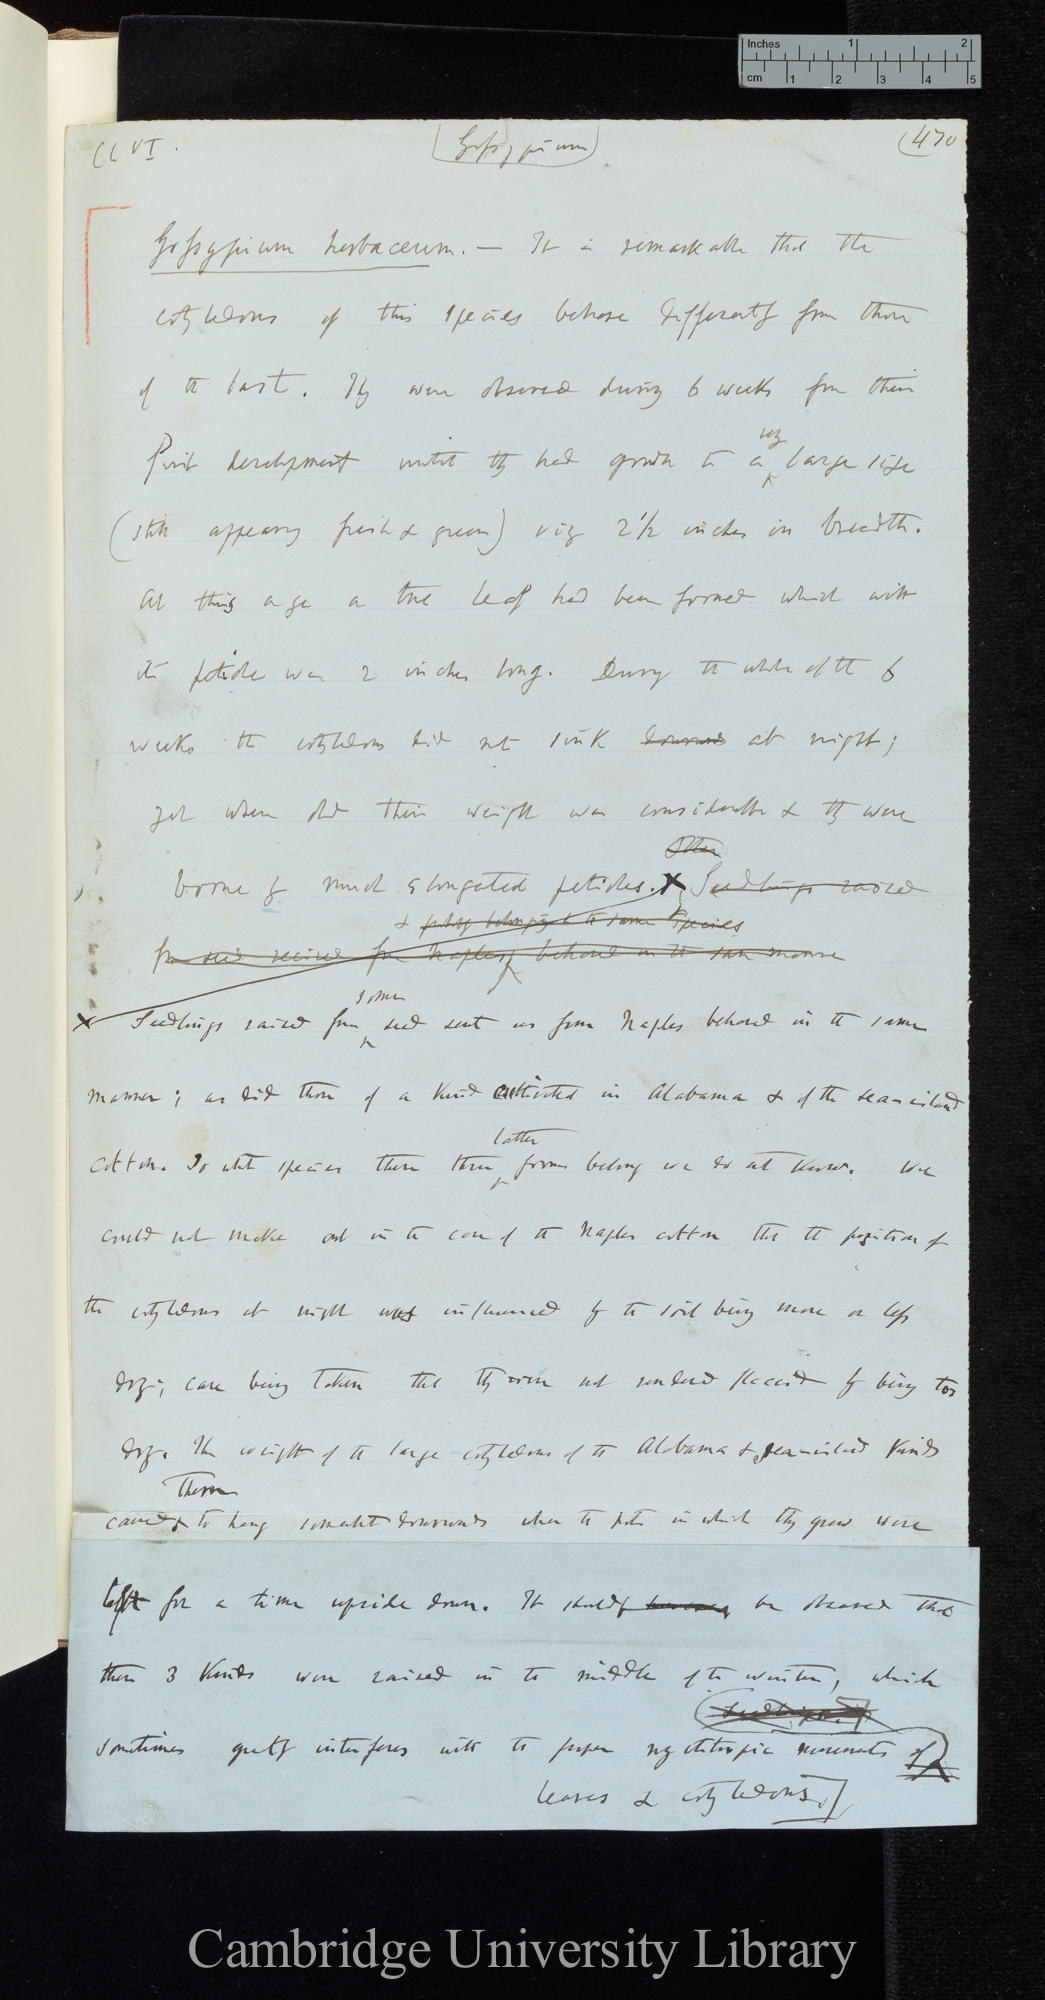 Inches 1 2
cm 1 2 3 4 5
CLVI.
(Gossypium)
(470
Gossypium herbaceum. — It is remarkable that the
cotyledons of this species behave differently from those
of the last. They were observed during 6 weeks from their
very
first development until they had grown to a large size
(still appearing fresh & green) viz 2 1/2 inches in breadth.
At this age a true leaf had been formed which with
its petiole was 2 inches long. During the whole of the 6
weeks the cotyledons did not sink downwards at night;
yet when old their weight was considerable & they were
Other
borne by much elongated petioles. X Seedlings raised
& belonging to the same species
from seed received from Naples, behaved in the same manner
some
X Seedlings raised from seed sent us from Naples behaved in the same
manner; as did those of a kind cultivated in Alabama & of the sea-island
latter
cotton. To what species these three forms belong we do not know. We
could not make out in the case of the Naples cotton that the position of
the cotyledons at night was influenced by the soil being more or less
dry; care being taken that they were not rendered flaccid by being too
dry. The weight of the large cotyledons of the Alabama & sea-island kinds
them
caused to hang somewhat downwards when the pots in which they grew were
left for a time upside down. It should however be observed that
these 3 kinds were raised in the middle of the winter, which
sometimes greatly interferes with the proper nyctitropic movements of
leaves & cotyledons.]
Cambridge University Library